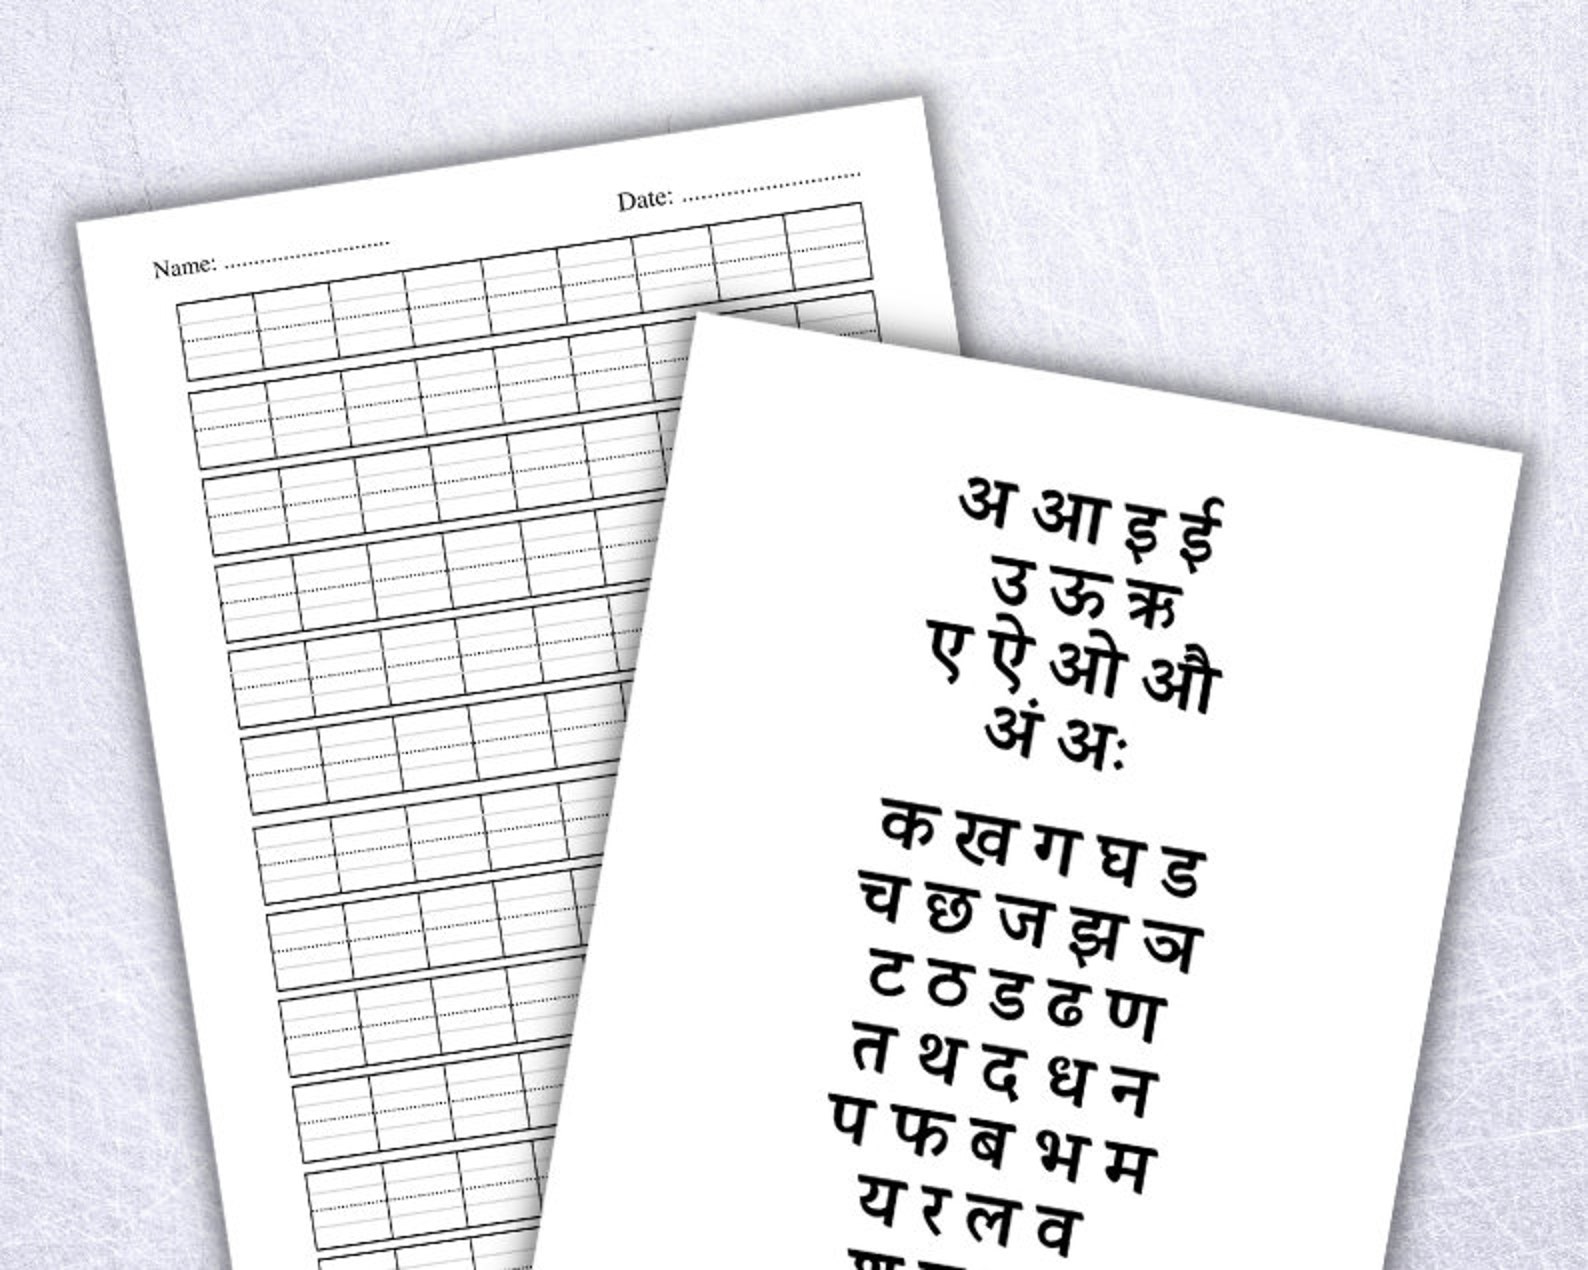 Name: ........................
Date: ...........................
अ आ इ ई
उ ऊ ऋ
ए ऐ ओ औ
अं अः
क ख ग घ ड
च छ ज झ ञ
ट ठ ड ढ ण
त थ द ध न
प फ ब भ म
य र ल व